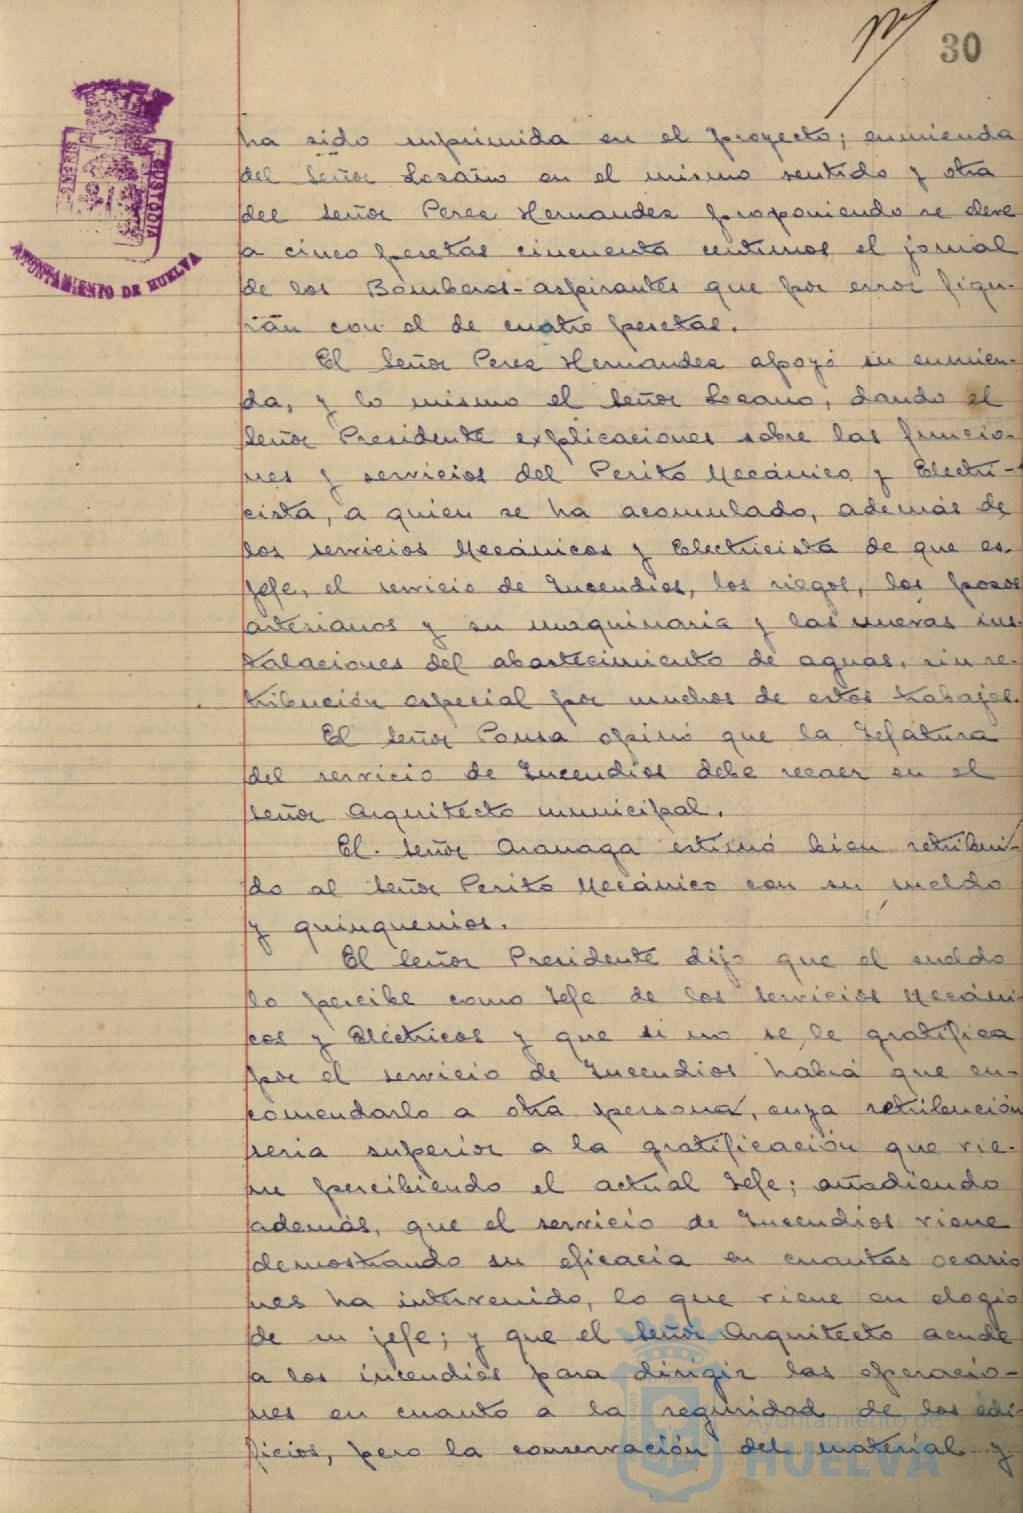 30
ha sido suprimida en el proyecto; enmienda
del Señor Lozano en el mismo sentido y otra
del Señor Perez Hernandez proponiendo se eleve
a cinco pesetas cincuenta centimos el jornal
de los Bomberos-aspirantes que por error figu-
ran con el de cuatro pesetas.
El Señor Perez Hernandez apoyó su enmien-
da, y lo mismo el Señor Lozano, dando el
Señor Presidente explicaciones sobre las funcio-
nes y servicios del Perito Mecánico y Electri-
cista, a quien se ha acomulado, además de
los servicios Mecánicos y Electricista de que es
Jefe, el servicio de Incendios, los riegos, los pozos
artesianos y su maquinaria y las nuevas ins-
talaciones del abastecimiento de aguas, sin re-
tribución especial por muchos de estos trabajos.
El Señor Pousa opinó que la Jefatura
del servicio de Incendios debe recaer en el
Señor Arquitecto municipal.
El Señor Aranaga estimó bien retribui-
do al Señor Perito Mecánico con su sueldo
y quinquenios.
El Señor Presidente dijo que el sueldo
lo percibe como Jefe de los servicios Mecáni-
cos y Eléctricos y que si no se le gratifica
por el servicio de Incendios habrá que en-
comendarlo a otra persona, cuya retribución
seria superior a la gratificación que vie-
ne percibiendo el actual Jefe; añadiendo
además, que el servicio de Incendios viene
demostrando su eficacia en cuantas ocasio
nes ha intervenido, lo que viene en elogio
de su jefe; y que el Señor Arquitecto acude
a los incendios para dirigir las operacio-
nes en cuanto a la seguridad de los edi-
ficios, pero la conservación del material y
CUSTODIA
AYUNTAMIENTO DE HUELVA
Ayuntamiento de
HUELVA